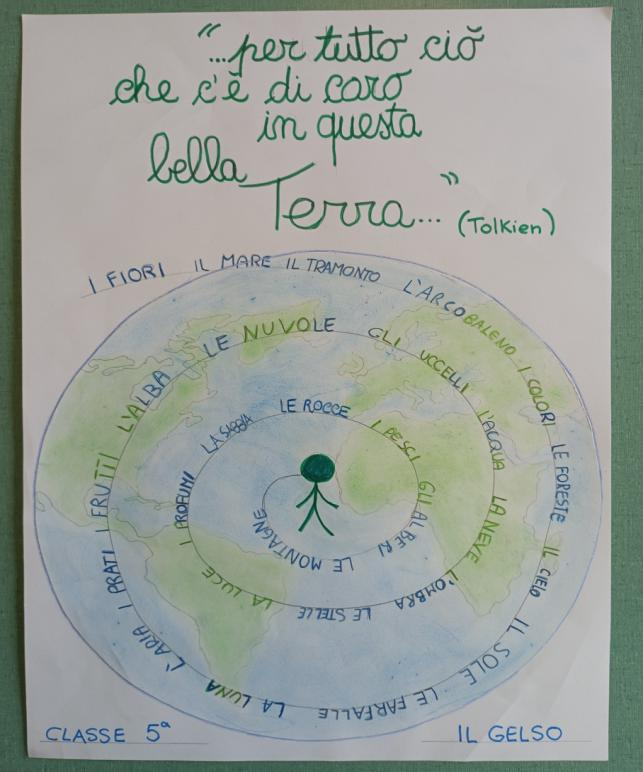 “...per tutto ciò
che c'è di caro
in questa
bella
Terra...”
(Tolkien)
I FIORI IL MARE IL TRAMONTO L'ARCOBALENO I COLORI LE FORESTE IL CIELO IL SOLE LE FARFALLE LA LUNA L'ARIA I PRATI I FRUTTI L'ALBA LE NUVOLE GLI UCCELLI L'ACQUA LA NEVE L'OMBRA LE STELLE LA LUCE I PROFUMI LA SABBIA LE ROCCE I PESCI GLI ALBERI LE MONTAGNE
CLASSE 5ª
IL GELSO